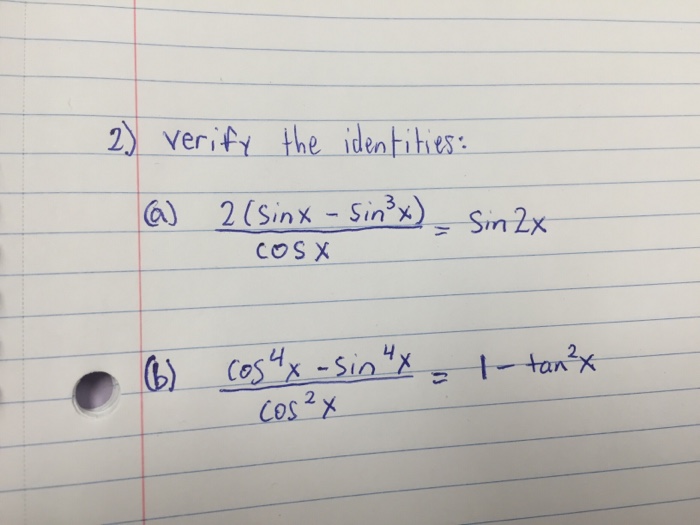 2) verify the identities:
(a) 2(sinx - sin³x) / cos x = sin 2x
(b) cos⁴x - sin⁴x / cos²x = 1 - tan²x